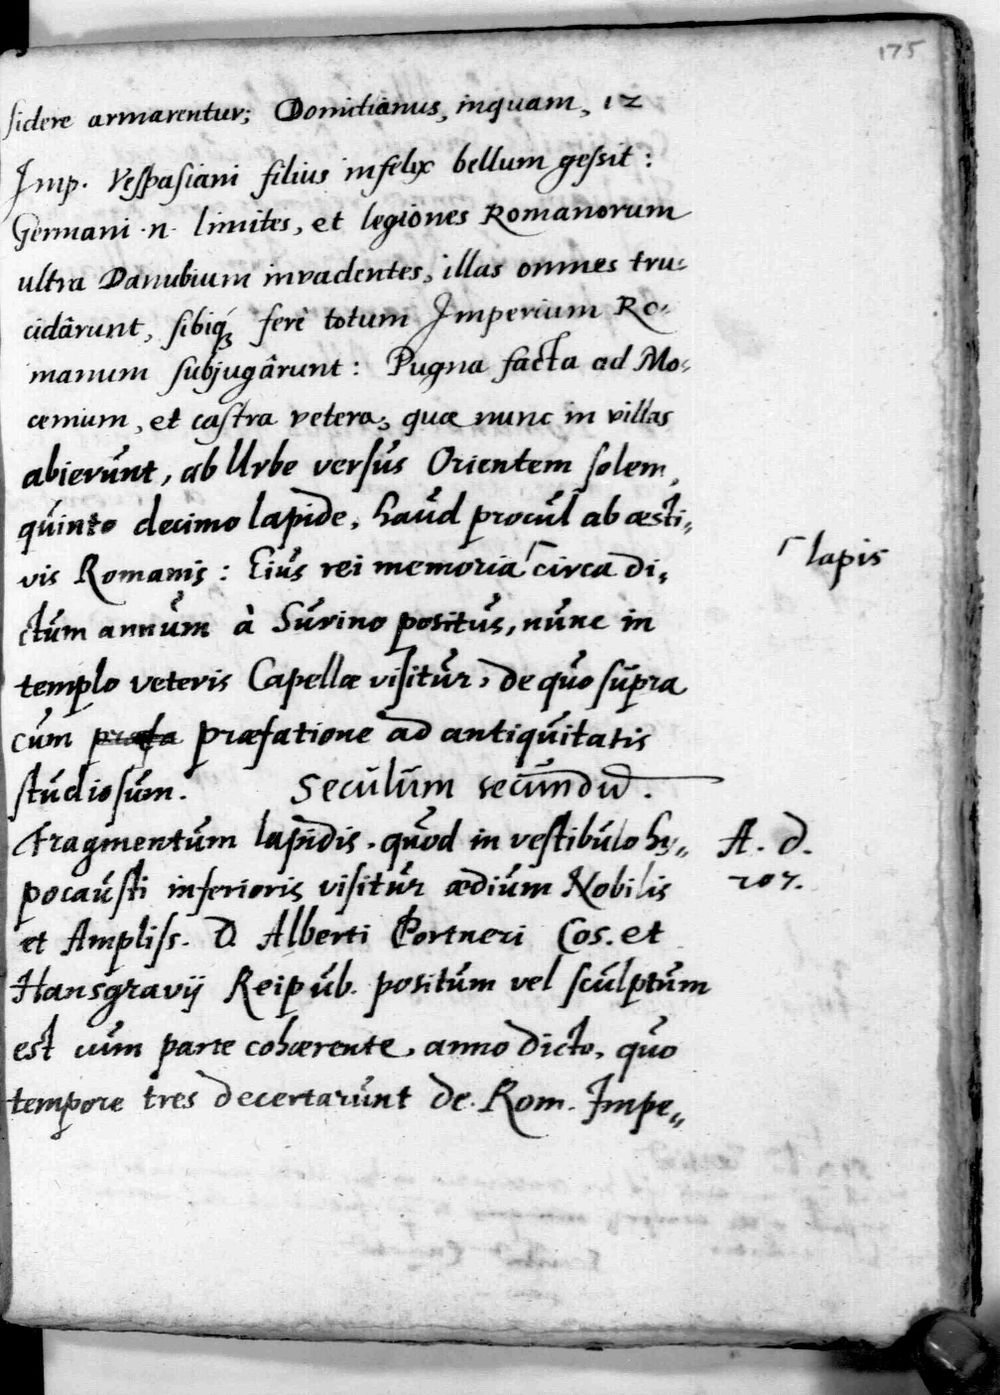 175
sidere armarentur; Domitianus, inquam, 12
Imp. Vespasiani filius infelix bellum gessit:
Germani .n. limites, et legiones Romanorum
ultra Danubium invadentes, illas omnes tru-
cidârunt, sibiq; ferè totum Imperium Ro-
manum subjugârunt: Pugna facta ad Mo-
cenium, et castra vetera, quæ nunc in villas
abierunt, ab Urbe versus Orientem solem,
quinto decimo lapide, haud procul ab æsti-
vis Romanis: Eius rei memoria ⌈circa di-
⌈lapis
ctum annum à Surino positus, nunc in
templo veteris Capellæ visitur, de quo supra
cum præfa præfatione ad antiquitatis
studiosum. Seculum secundū.
Fragmentum lapidis, quod in vestibulo hy-
A. d.
207.
pocausti inferioris visitur ædium Nobilis
et Ampliss. D. Alberti Portneri Cos. et
Hansgravij Reipub. positum vel sculptum
est cum parte cohærente, anno dicto, quo
tempore tres decertarunt de Rom. Impe-